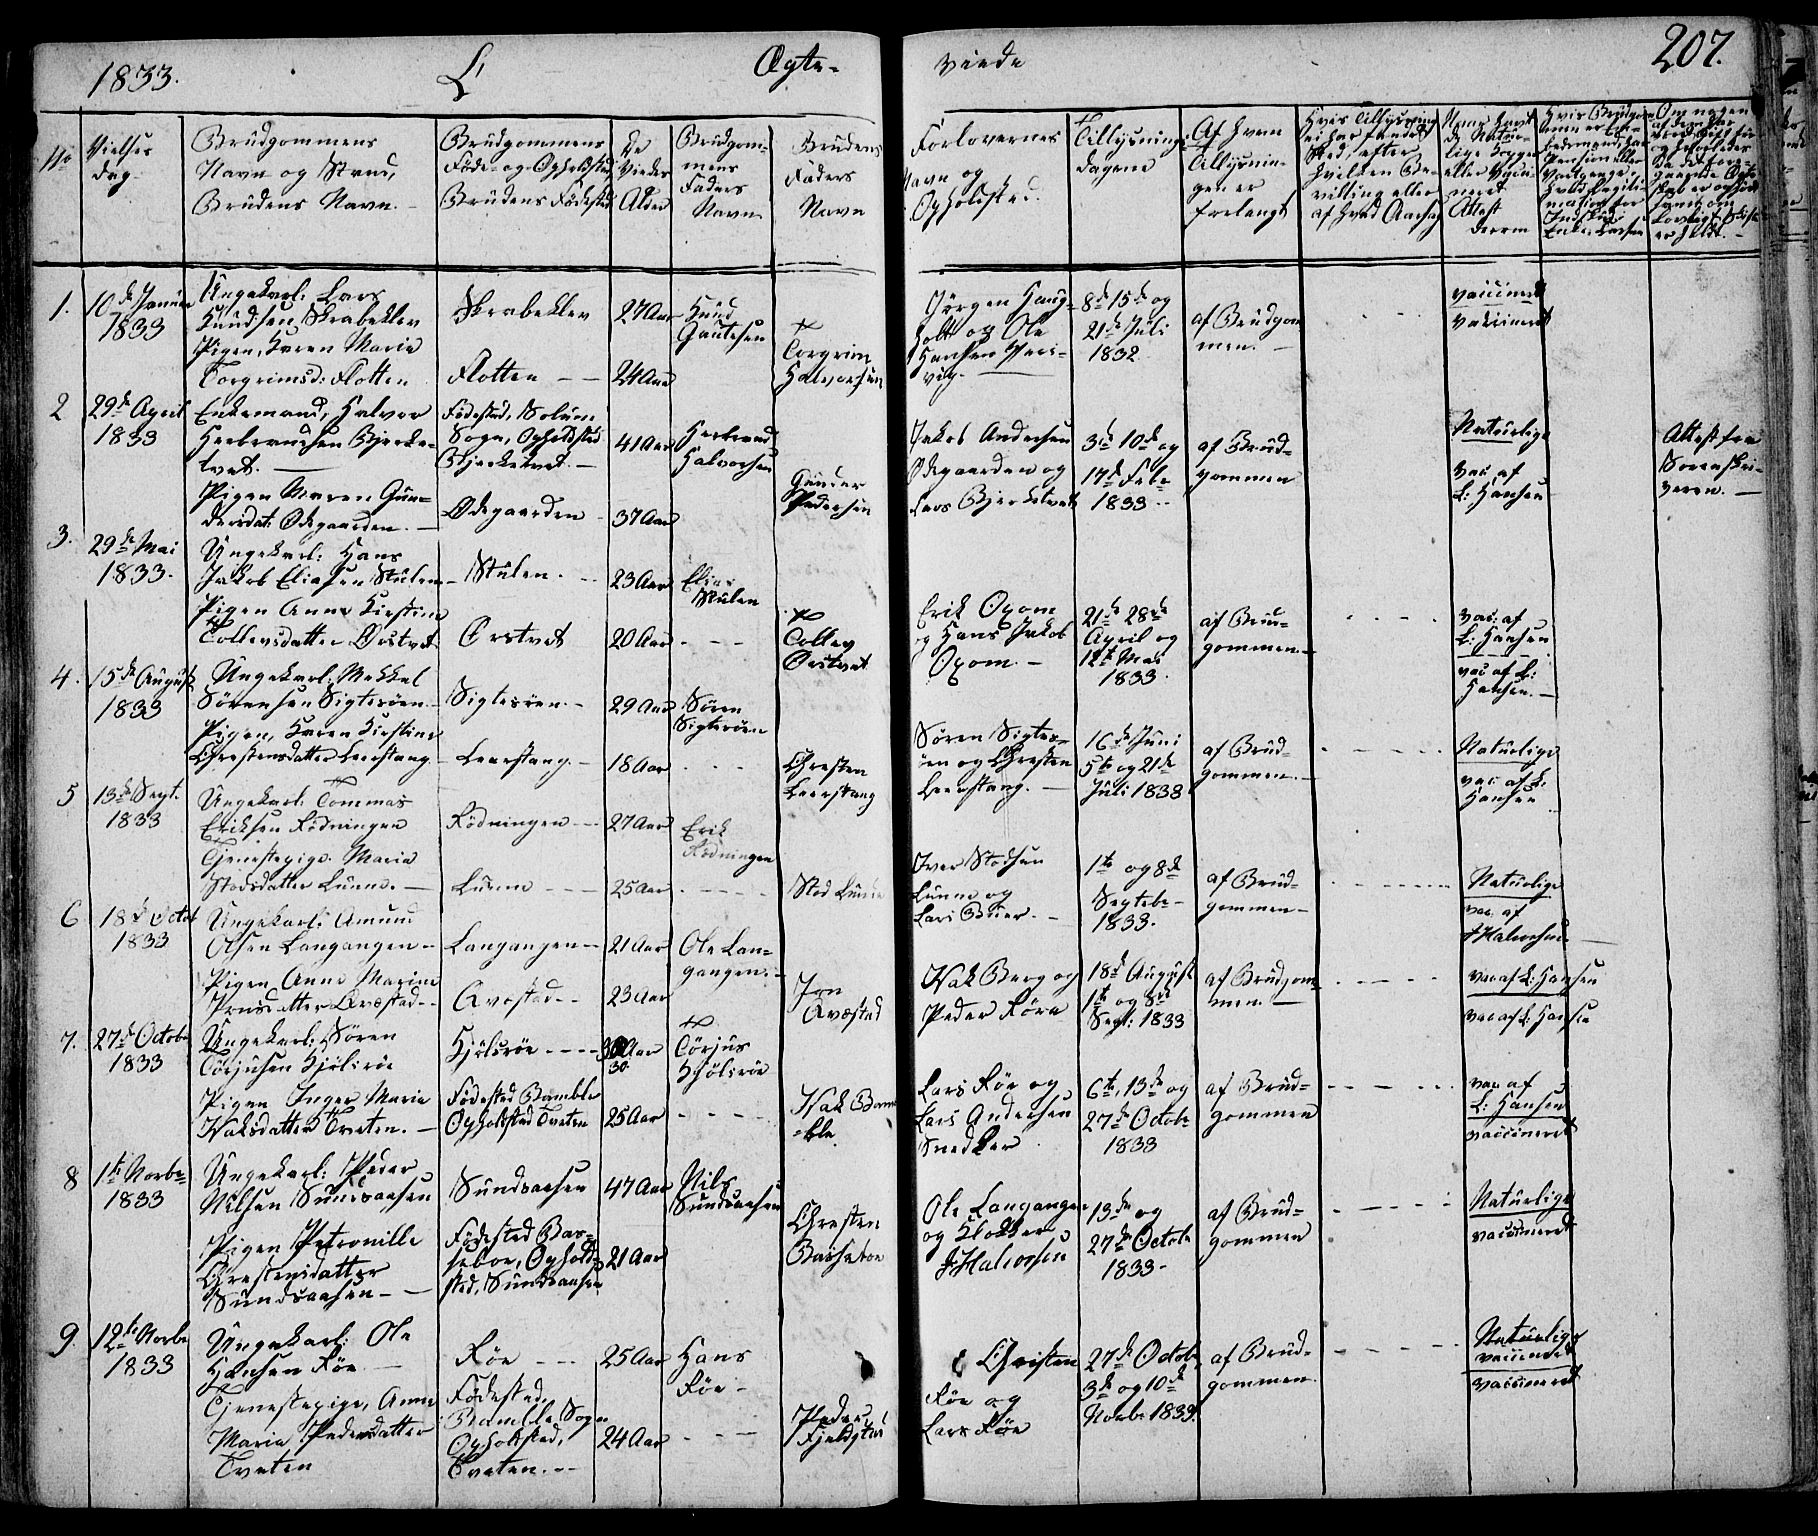 1833.
L
Ægte-
viede
207.
No
Vielses
dag.
Brudgommens
Navn og Stand,
Brudens Navn.
Brudgommens
Føde- og Opholdsted
Brudens Fødested
De
Viedes
Alder
Brudgom-
mens
Faders
Navn
Brudens
Faders
Navn
Forlovernes
Navn og
Opholdsted.
Tillysnings
dagene
Af hvem
Tillysnin-
gen er
forlangt
Hvis Tillysning
ei har fundet
Sted, efter
hvilken Be-
villing eller
af hvad Aarsag
Naar havt
de Natur-
lige Kopper
eller Vaccin-
neret
Attest
derom
1.
10de Januar
1833
Ungekarl: Lars
Knudsen Skrabeklev
Pigen, Karen Maria
Torgrimsd: Flotten
Skrabeklev
Flotten
27 Aar
24 Aar
Knud
Gautesen
Torgrim
Halvorsen
Jørgen Haug-
holt og Ole
Hansen
8de 15de og
21de Juli
1832
af Brudgom
men.
vaccineret
vaccineret
2
29de April
1833
Enkemand, Halvor
Herbrandsen Bjerke-
tvet.
Pigen Maren Gun-
dersdat: Ødegaarden.
Fødested, Solum
Sogn, Opholdsted
Bjerketvet.
Ødegaarden
41 Aar
37 Aar
Herbrand
Halvorsen
Gunder
Pedersen
Jakob Andersen
Ødegaarden og
Lars Bjerketvet
3de 10de og
17de Febr
1833
af Brud-
gommen
Naturlige
vac af
L: Hansen
Attest fra
Sorenskri-
veren.
3.
29de Mai
1833.
Ungekarl: Hans
Jakob Eliasen Stulen
Pigen Anne Kirstine
Tollevsdatter Ørstvet
Stulen.
Ørstvet
23 Aar
20 Aar
Elias
Stulen
Tollev
Ørstvet
Erik Oxom
og Hans Jakob
Oxom.
21de 28de
April og
12te Mai
1833.
af Brud-
gommen.
vac: af
L: Hansen
vac af L:
Hansen.
4.
15de August
1833
Ungekarl: Mekkel
Sørensen Sigtesøen
Pigen, Karen Kirstine
Chrestensdatter Leerstang
Sigtesøen.
Leerstang
29 Aar
18 Aar
Søren
Sigtesøen
Chresten
Leerstang
Søren Sigtes-
øen og Chresten
Leerstang.
16de Juni
5te og 21de
Juli 1833
af Brud-
gommen.
Naturlige
vac af L:
Hansen
5
13de Sept.
1833
Ungekarl: Tommas
Eriksen Rødningen
Tjenestepige. Maria
Stodsdatter Lunne.
Rødningen
Lunne
27 Aar
25 Aar
Erik
Rødningen
Stod Lunde
Iver Stodsen
Lunne og
Lars Buer.
1te og 8de
Septebr
1833.
af Brud-
gommen
Naturlige
vac. af
J Halvorsen.
6
18de Octob
1833
Ungekarl: Amund
Olsen Langangen
Pigen Anne Marine
Jonsdatter Avæstad
Langangen
Avæstad
21 Aar
23 Aar
Ole Lan-
gangen.
Jon
Avæstad
Isak Berg og
Peder Føre
18de August
1te og 8de
Sept: 1833
af Brudgom
men.
vac af L: Hansen
vac af L: Hansen
7.
27de Octobr
1833
Ungekarl: Søren
Torjusen Kjølsrøe
Pigen Inger Maria
Isaksdatter Tveten.
Kjølsrøe
Fødested Bamble
Opholdsted Tveten
30 Aar
30.
25 Aar
Torjus
Kjølsrøe
Isak Bam
ble.
Lars Røe og
Lars Andersen
Snedker
6te, 13de og
27de Octobr
1833
af Brud-
gommen
vac. af
L: Hansen
vaccineret
8
1te Novbr
1833
Ungekarl: Peder
Nilsen Sundsaasen
Pigen Petronille
Chrestensdatter
Sundsaasen
Sundsaasen
Fødested Bas-
seboe, Ophold-
sted, Sundsaasen
47 Aar
21 Aar
Nils
Sundsaasen
Chresten
Basseboe
Ole Langangen
og Klokker
J: Halvorsen
13de og
27de Octobr
1833.
af Brud-
gommen
Naturlige
vaccineret
9.
12te Novbr
1833
Ungekarl: Ole
Hansen Røe
Tjenestepige, Anne
Maria Pedersdatter
Tveten
Røe
Fødested,
Bamble Sogn
Opholdsted,
Tveten.
25 Aar
24 Aar
Hans
Røe
Peder
Christen
Røe og
Lars Røe
27de Octobr
3de og 10de
Novbr 1833.
af Brud-
gommen
Naturlige
vaccineret
vaccineret